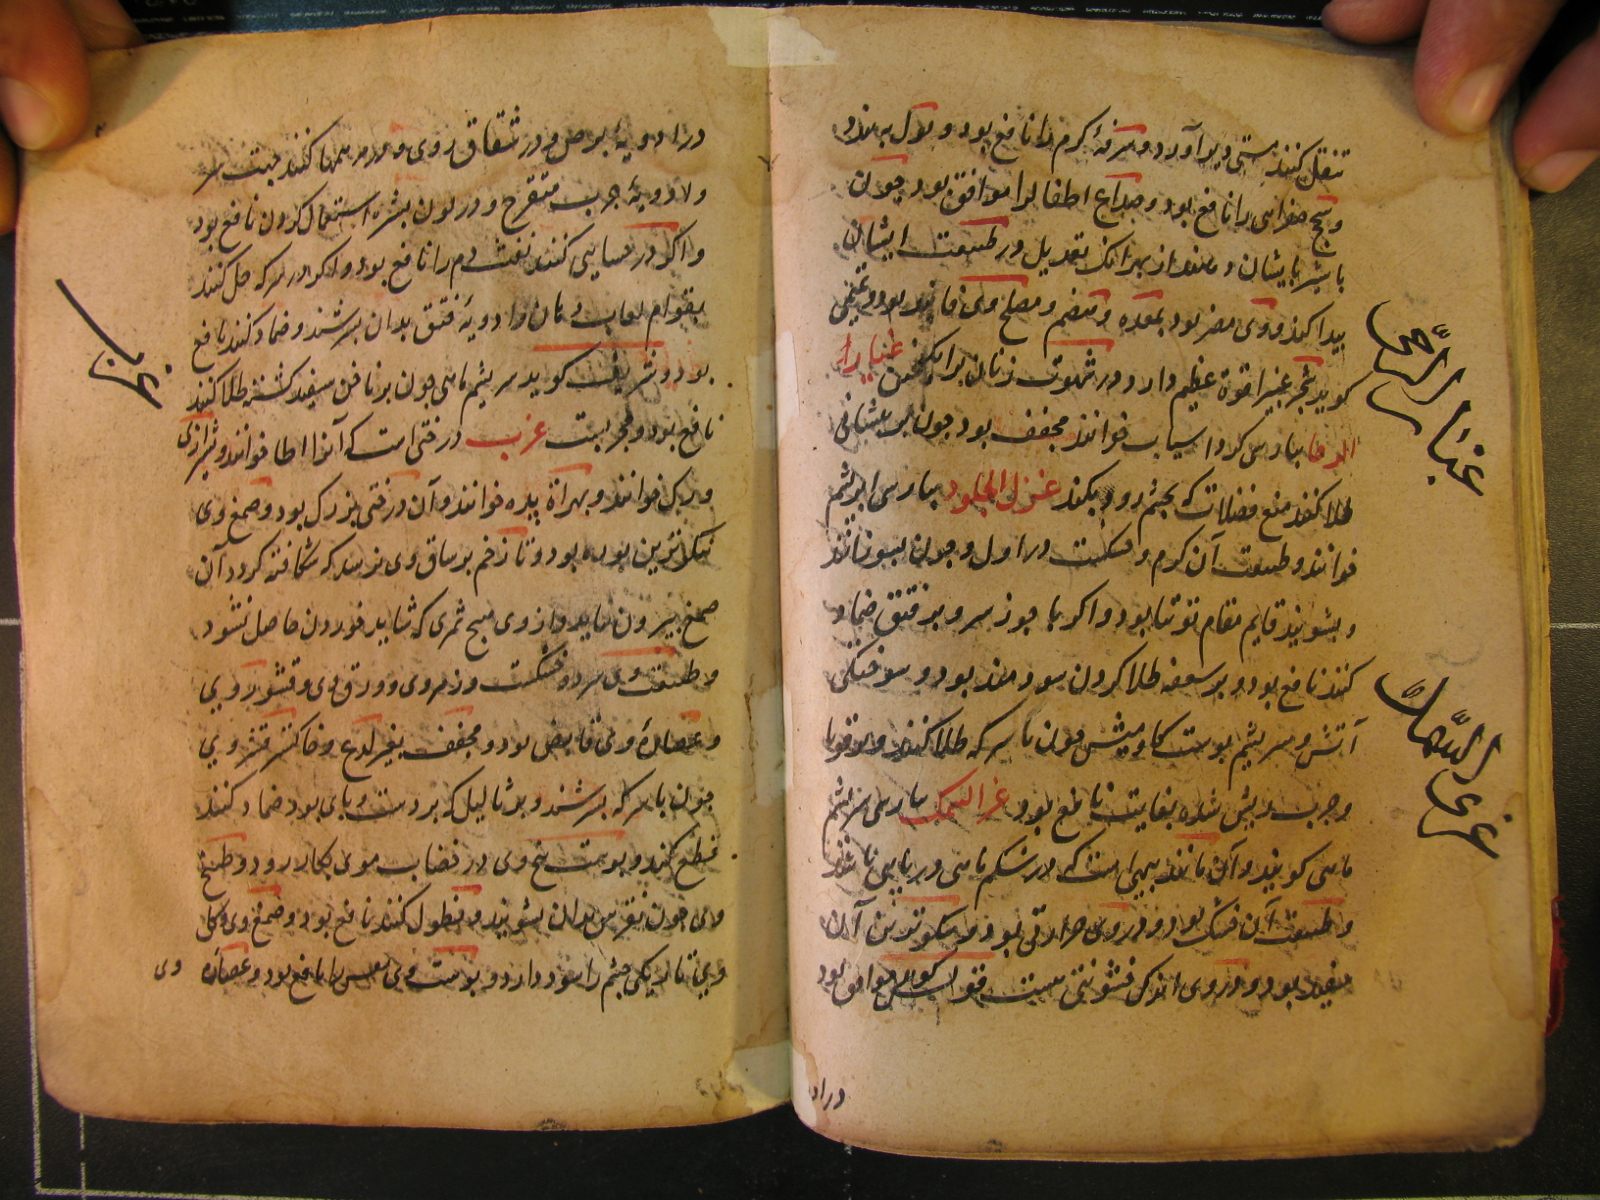 تنقل کنند مستی دیر آورد و سرفهٔ کرم را نافع بود و بول براند و
و سحج صفراوی را نافع بود و صداع اطفال را موافق بود چون
با شیر بایشان دهند از بهر آنک تعدیل در طبیعت ایشان
پیدا کند و وی مضر بود بمعده و هضم و مصلح وی فانید بود و تمیمی
کوید شجر غبیرا قوة عظیم دارد در شهوت زنان برانکیختن غبار
الرحا بپارسی کرد آسیاب خوانند مجفف بود چون بر پیشانی
طلا کنند منع فضلات که بچشم رود بکند غری الجلود بپارسی سریشم
خوانند و طبیعت آن کرم و خشکست در اول و چون بسوزانند
و بشویند قایم مقام توتیا بود و اکر با جوز سرو بر فتق ضماد
کنند نافع بود و بر سعفه طلا کردن سودمند بود و سوختکی
آتش و سریشم پوست کاومیش چون با سرکه طلا کنند بر قوبا
و جرب ریش شده بغایت نافع بود غرا السمک بپارسی سریشم
ماهی کویند و آن مانند پیهی است که در شکم ماهی دریایی باشد
و طبیعت آن خشک بود و در وی حرارتی بود و نیکوترین آن
سفید بود و در وی اندک خشونتی نیست موافق بود
غبار الرحی
غری السمک
دراد
در ادویهٔ برص و در شقاق روی و در مرهمها کنند جهت سر
و ادویهٔ جرب متقرح و در لون بشره استعمال کردن نافع بود
و اکر در حسایی کنند نفث دم را نافع بود و اکر در سرکه حل کنند
بقوام لعاب و مان و ادویهٔ فتق بدان بسرشند و ضماد کنند نافع
بود و شریف کوید سریشم ماهی چون بر ناخن سفید کشته طلا کنند
نافع بود و مجربست غرب درختی است که آنرا اطا خوانند و شیرازی
ورک خوانند و بهراة پده خوانند و آن درختی بزرک بود و صمغ وی
نیکوترین بوره بود و تا زخم بر ساق وی نزنند که شکافته کردد آن
صمغ بیرون نیاید و از وی هیچ ثمری که شاید خوردن حاصل نشود
و طبیعت وی سرد و خشکست و زهر وی و ورق وی و قشور وی
و عصارهٔ وی قابض بود و مجفف بغیر لدع و خاکستر قشر وی
چون با سرکه بسرشند و بر ثالیل که بر دست و پای بود ضماد کنند
قطع کند و پوست بیخ وی در خضاب موی بکار رود و طبیخ
وی چون نقرس بدان بشویند و نطول کنند نافع بود و صمغ وی و کل
وی تاریکی چشم را سود دارد و پوست وی را نافع بود و عصاره وی
غرب